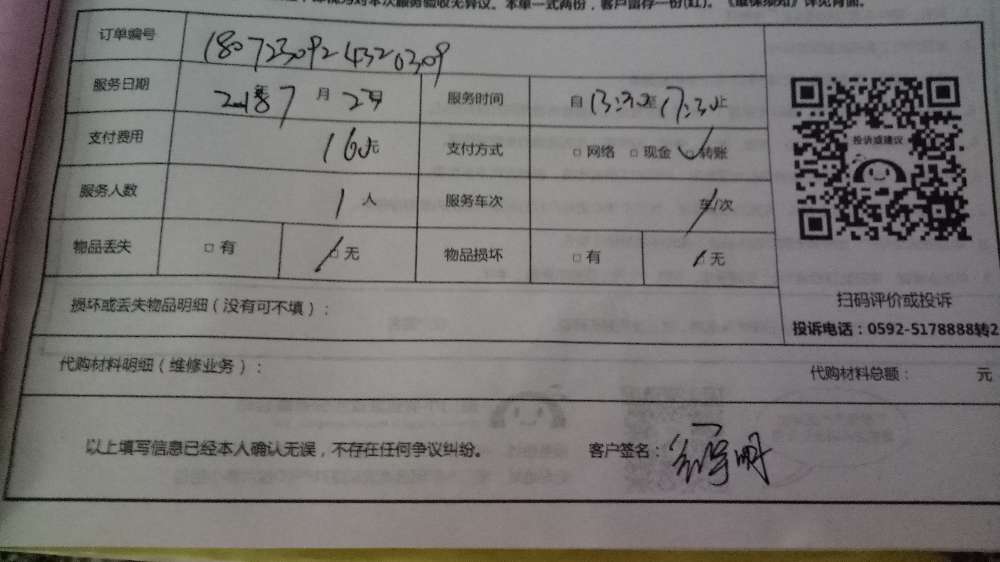 本单一式两份，客户留存一份(红)。
订单编号 1807230924320309
服务日期 2018年7月23日 服务时间 自13:30至17:30止
支付费用 160元 支付方式 □网络 □现金 ☑转账
服务人数 1人 服务车次 / 车/次
物品丢失 □有 ☑无 物品损坏 □有 ☑无
投诉或建议
扫码评价或投诉
投诉电话：0592-5178888转2
损坏或丢失物品明细（没有可不填）：
代购材料明细（维修业务）： 代购材料总额： 元
以上填写信息已经本人确认无误，不存在任何争议纠纷。 客户签名：